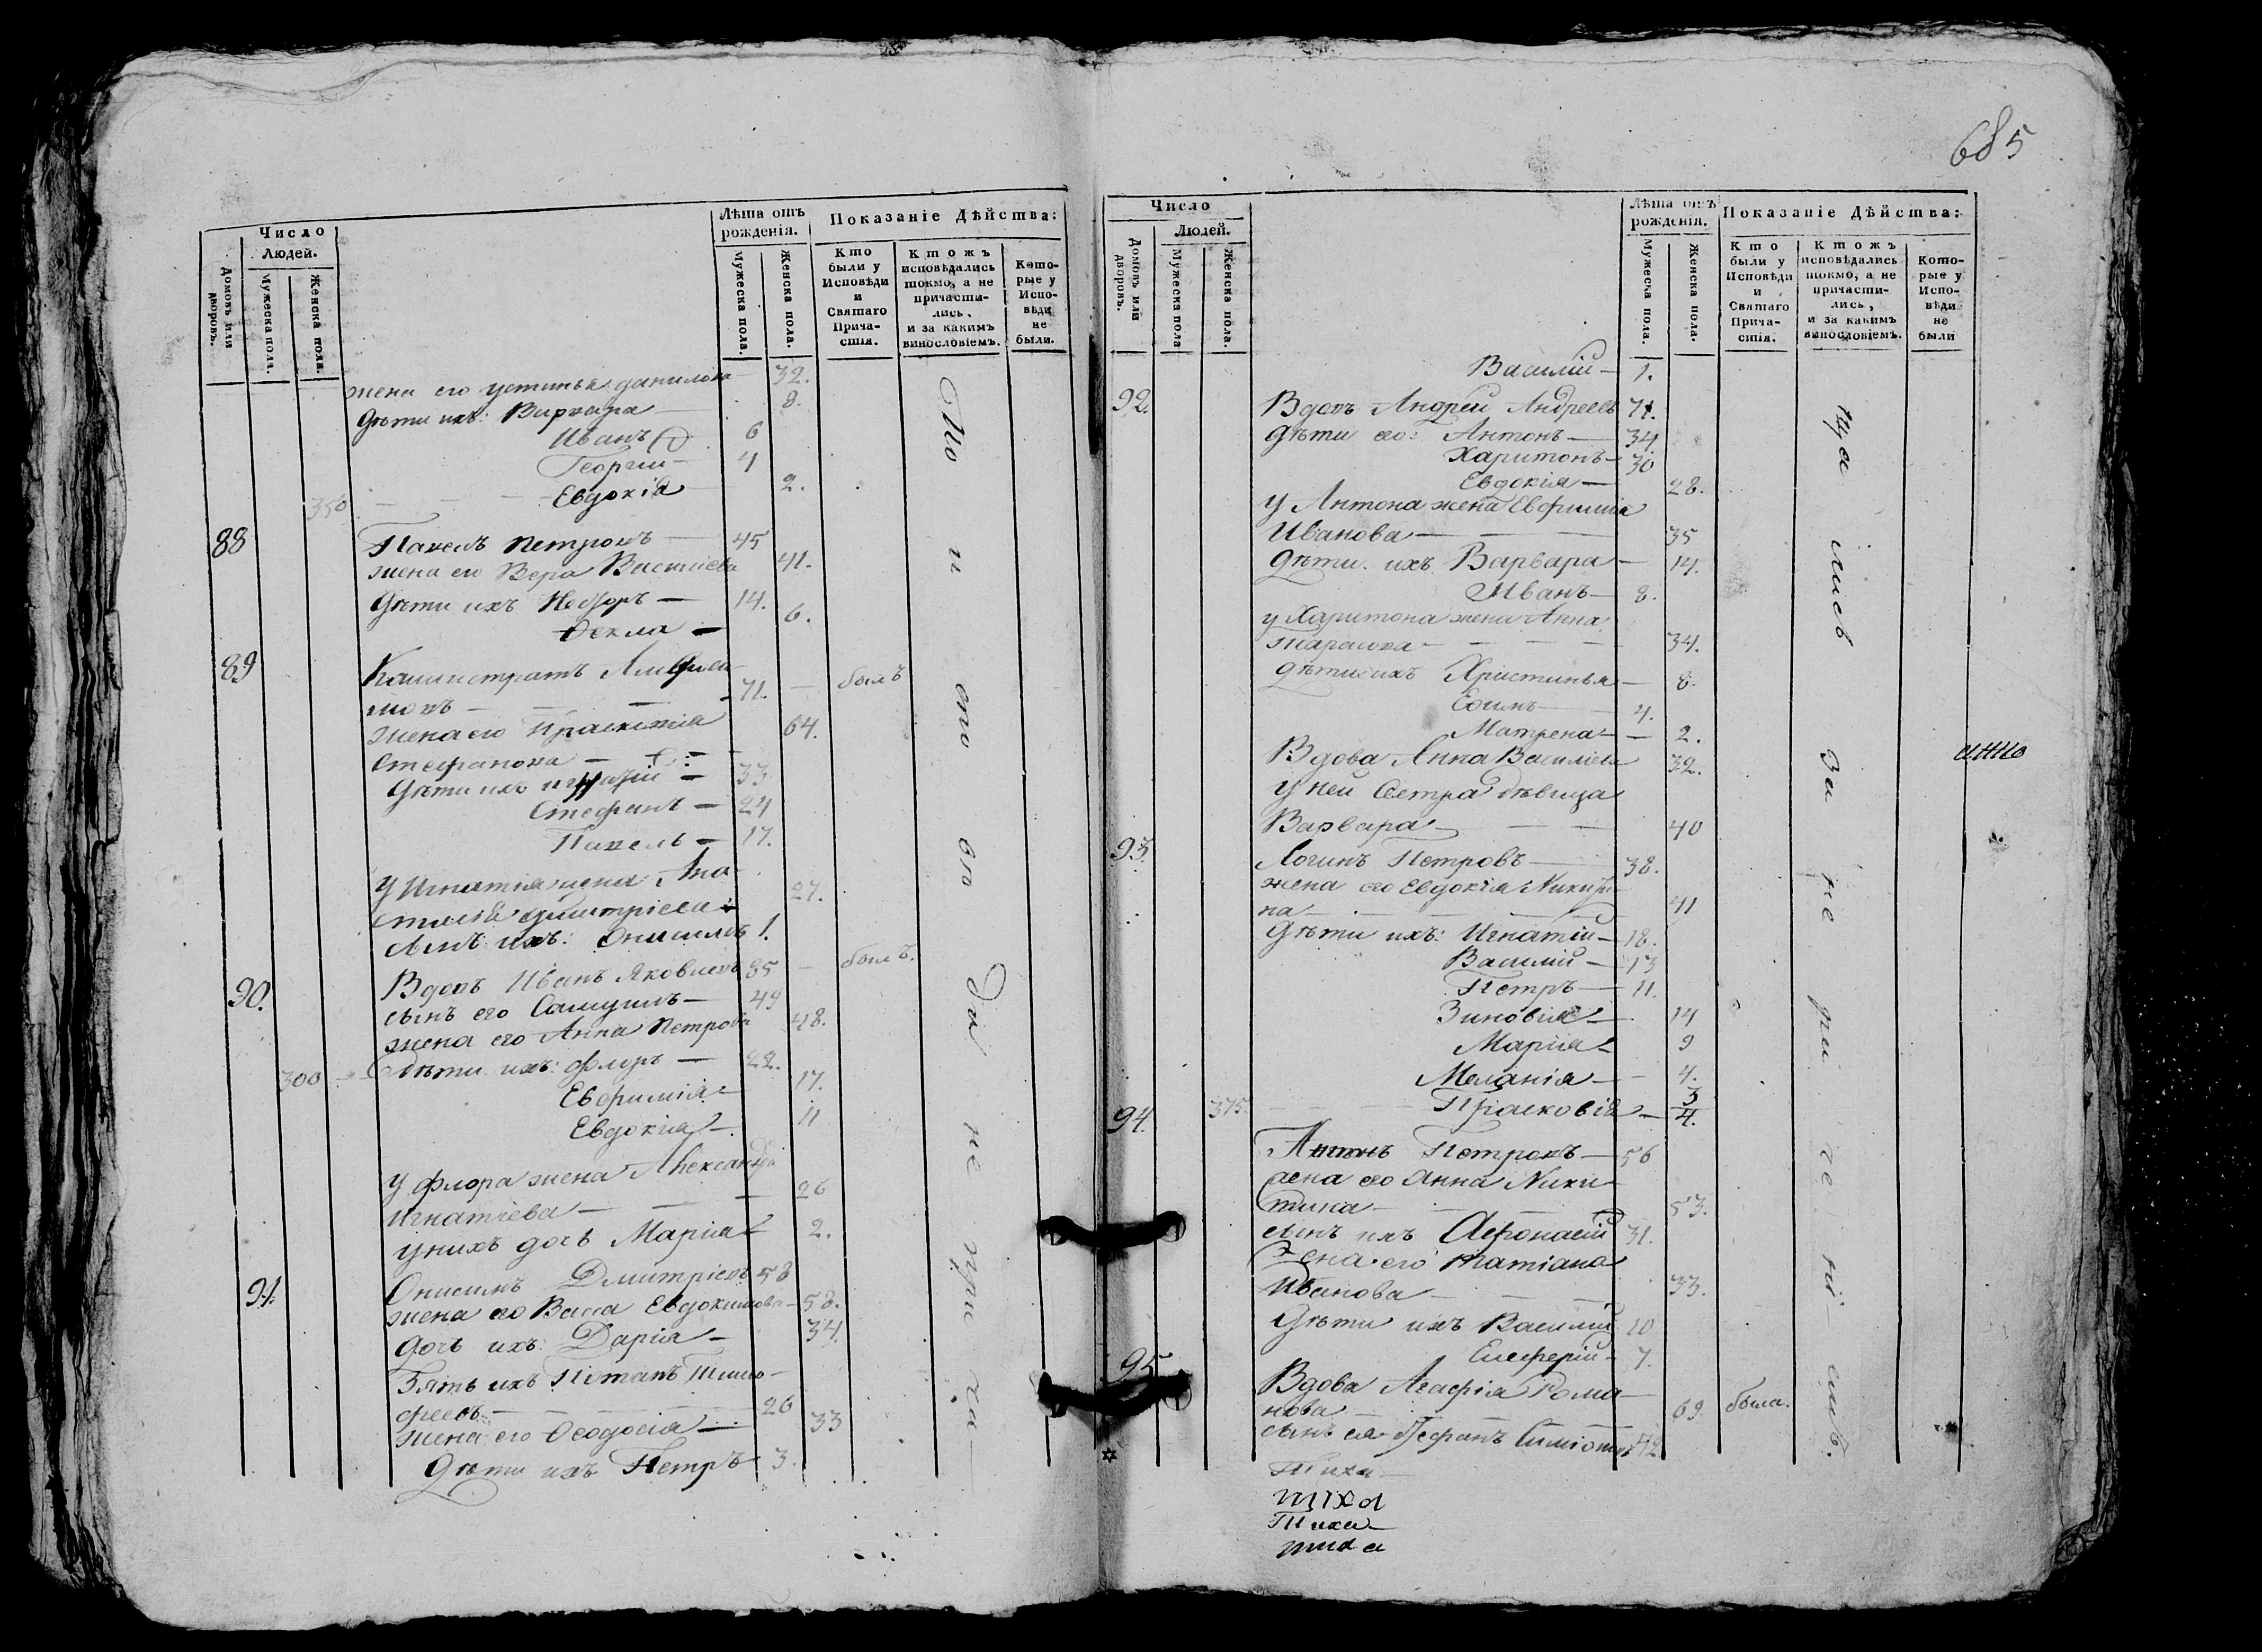 685
Число
Людей.
Домовъ или дворовъ.
Мужеска пола.
Женска пола.
Лѣта отъ рожденія.
Мужеска пола.
Женска пола.
Показаніе Дѣйства:
Кто были у Исповѣди и Святаго Причастія.
Ктожъ исповѣдались токмо, а не причастились, и за какимъ винословіемъ.
Которые у Исповѣди не были.
жена его Устинья Данилова 32.
дѣти ихъ: Варвара 8.
Иванъ 6
Георгій 4
350 Евдокія 2.
88 Павелъ Петровъ 45
жена его Вера 41.
Дѣти ихъ 14.
Ѳекла 6.
89 Калистратъ
71. былъ
Жена его Праскевія 64.
Стефанова
Дѣти ихъ 33
Стефанъ 24
Павелъ 17.
У Игнатія жена Ана-
стасія Димитріева 27.
сынъ ихъ: Онисимъ 1.
90. Вдовъ Иванъ Яковлевъ 85 былъ.
сынъ его Самуилъ 49
жена его Анна Петрова 48.
300 Дѣти ихъ: Флоръ 22.
Евфимія 17.
Евдокія 11
У Флора жена Александра
Игнатіева 26
у нихъ дочь Марія 2.
91. Онисимъ Дмитріевъ 58
жена его Васса Евдокимова 58.
дочь ихъ Дарія 34.
Зять ихъ Потапъ Тимо-
феевъ 26
жена его Ѳеодосія 33
Дѣти ихъ Петръ 3.
Число
Людей.
Домовъ или дворовъ.
Мужеска пола
Женска пола.
Лѣта отъ рожденія.
Мужеска пола.
Женска пола.
Показаніе Дѣйства:
Кто были у Исповѣди и Святаго Причастія.
Ктожъ исповѣдались токмо, а не причастились, и за какимъ винословіемъ.
Которые у Исповѣди не были
Василій 1.
92. Вдовъ Андрей Андреевъ 71.
Дѣти его: Антонъ 34.
Харитонъ 30
Евдокія 28.
У Антона жена Евфимія
Иванова 35
Дѣти ихъ Варвара 14.
Иванъ 8.
у Харитона жена Анна
Тарасова 34.
дѣти ихъ Христинья 8.
Ефимъ 4.
Матрена 2.
Вдова Анна Василіева 32.
У ней Сестра дѣвица
Варвара 40
93. Логинъ Петровъ 38.
жена его Евдокія Никити-
на 41
Дѣти ихъ: Игнатій 18.
Василій 13
Петръ 11.
Зиновія 14
Марія 9
Меланія 4.
375. Прасковія 3/4.
94. Антонъ Петровъ 56
жена его Анна Ники-
тина 53.
сынъ ихъ Афонасій 31.
жена его Татіана
Иванова 33.
Дѣти ихъ Василій 10
Елеферій 7.
95 Вдова Агафія Рома-
нова 69. была.
сынъ ея 42
Тиха
Тиха
Тиха
тиха